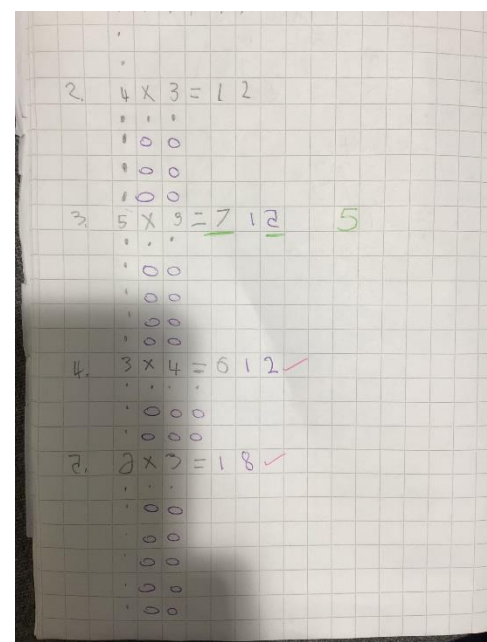 2. 4 × 3 = 12
3. 5 × 3 = 7 15 5
4. 3 × 4 = 6 12 ✓
5. 6 × 3 = 18 ✓